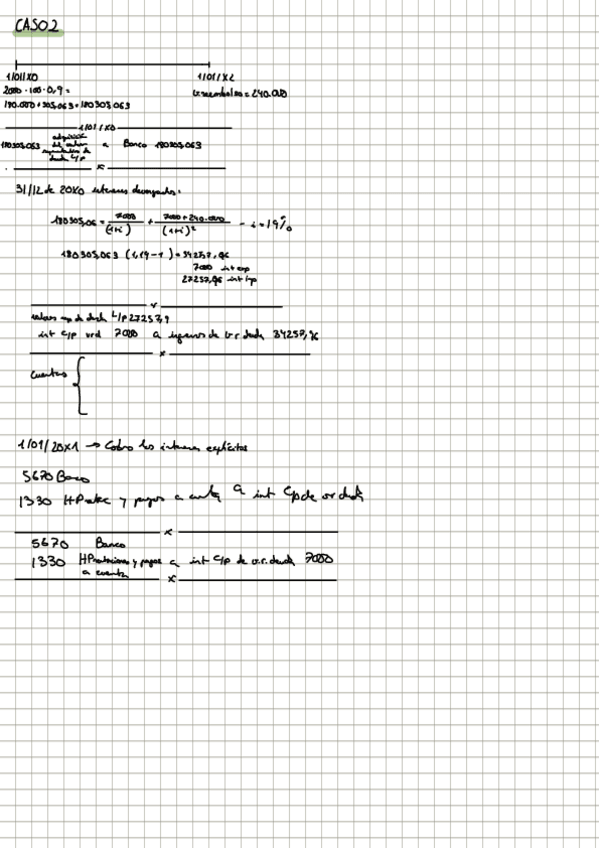 CASO 2
1/01/X0 1/01/X2
2000 · 100 · 0,9 = reembolso = 240.000
180.000 + 305,063 = 180305,063
1/01/X0
180305,063 a Banco 180305,063
deuda L/P
x
31/12 de 20X0 intereses devengados:
180305,06 = 7000/(1+i) + 7000+240.000/(1+i)² → i = 19%
180305,063 (1,19-1) = 34257,96
7000 int exp
27257,96 int imp
x
valores rep de deuda L/P 27257,9
int C/P vrd 7000 a ingresos de v.r deuda 34257,96
x
Cuentas {
1/01/20X1 → Cobro los intereses explícitos
5670 Banco
1330 HP retenc y pagos a cuenta a int C/p de v r deuda
x
5670 Banco
1330 HP retenciones y pagos a int C/p de v.r. deuda 7000
a cuenta
x